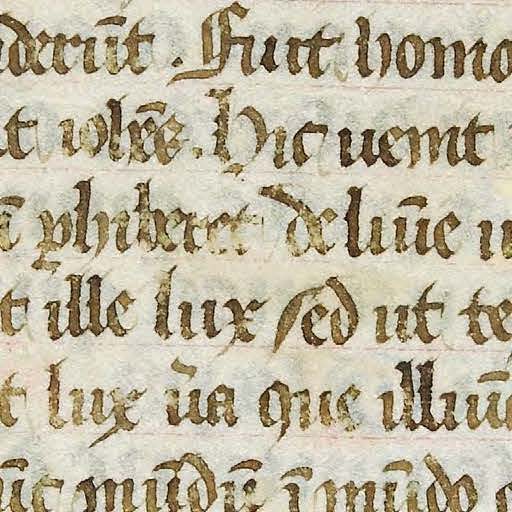 derūt. Fuit homo
t iohēs. Hic uenit
ꝑhiberet de lūie
t ille lux sed ut te
t lux ūa que illūi
mūdū ī mūdo